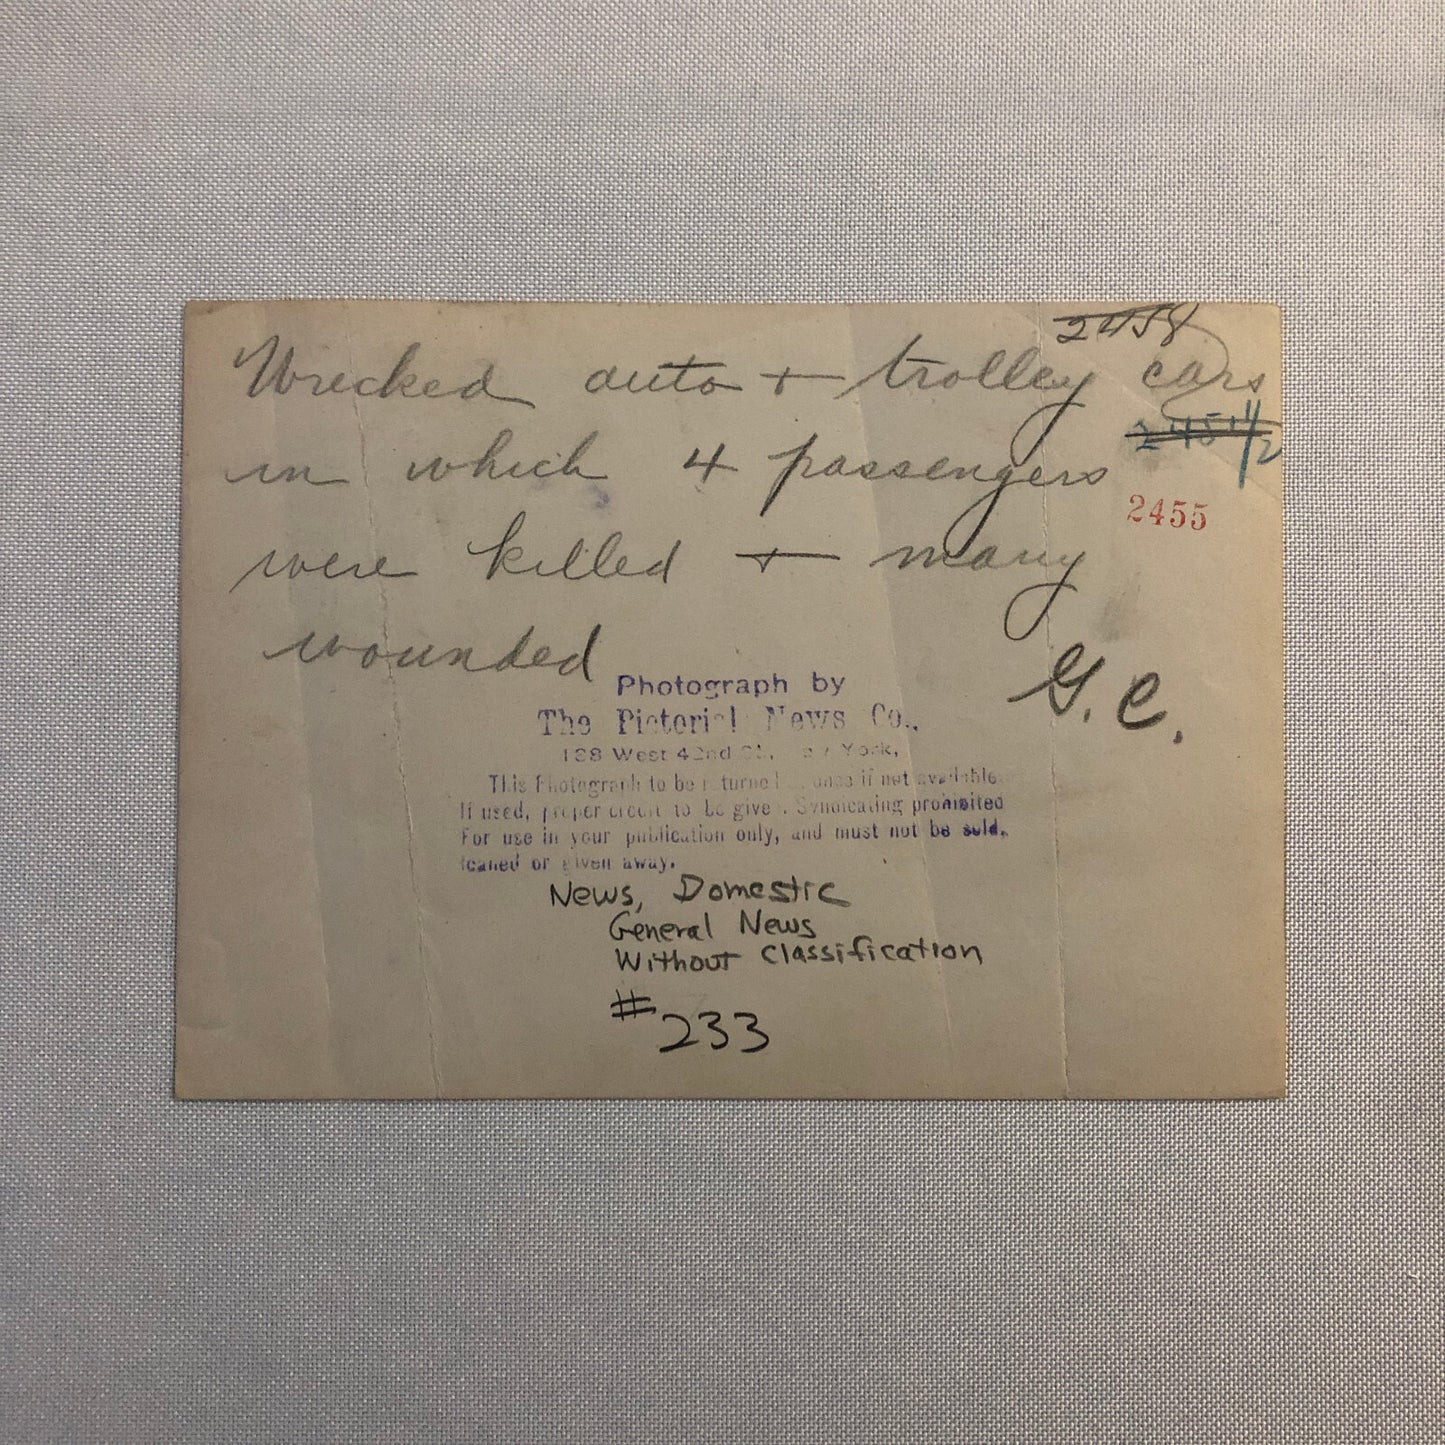 2458
Wrecked auto + trolley cars
in which 4 passengers
2451 1/2
2455
were killed + many
wounded
G. C.
Photograph by
The Pictorial News Co.,
West 42nd St., New York,
This Photograph to be returned at once if not available.
If used, proper credit to be given. Syndicating prohibited
For use in your publication only, and must not be sold,
loaned or given away.
News, Domestic
General News
Without Classification
#233